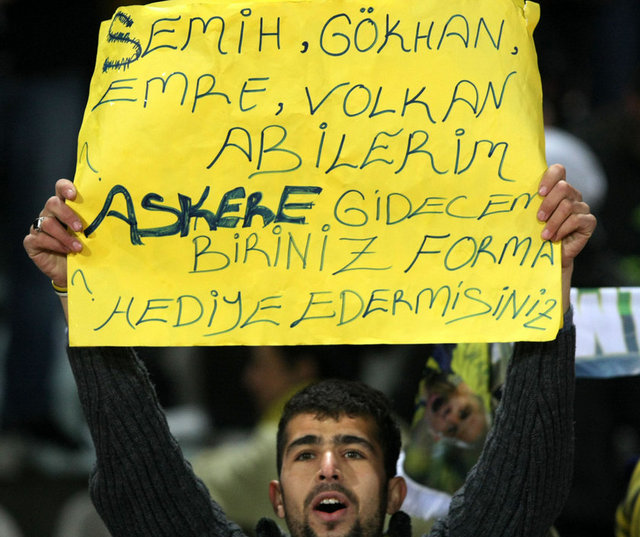 SEMİH, GÖKHAN,
EMRE, VOLKAN
ABİLERİM
ASKERE GİDECEM
BİRİNİZ FORMA
HEDİYE EDERMİSİNİZ